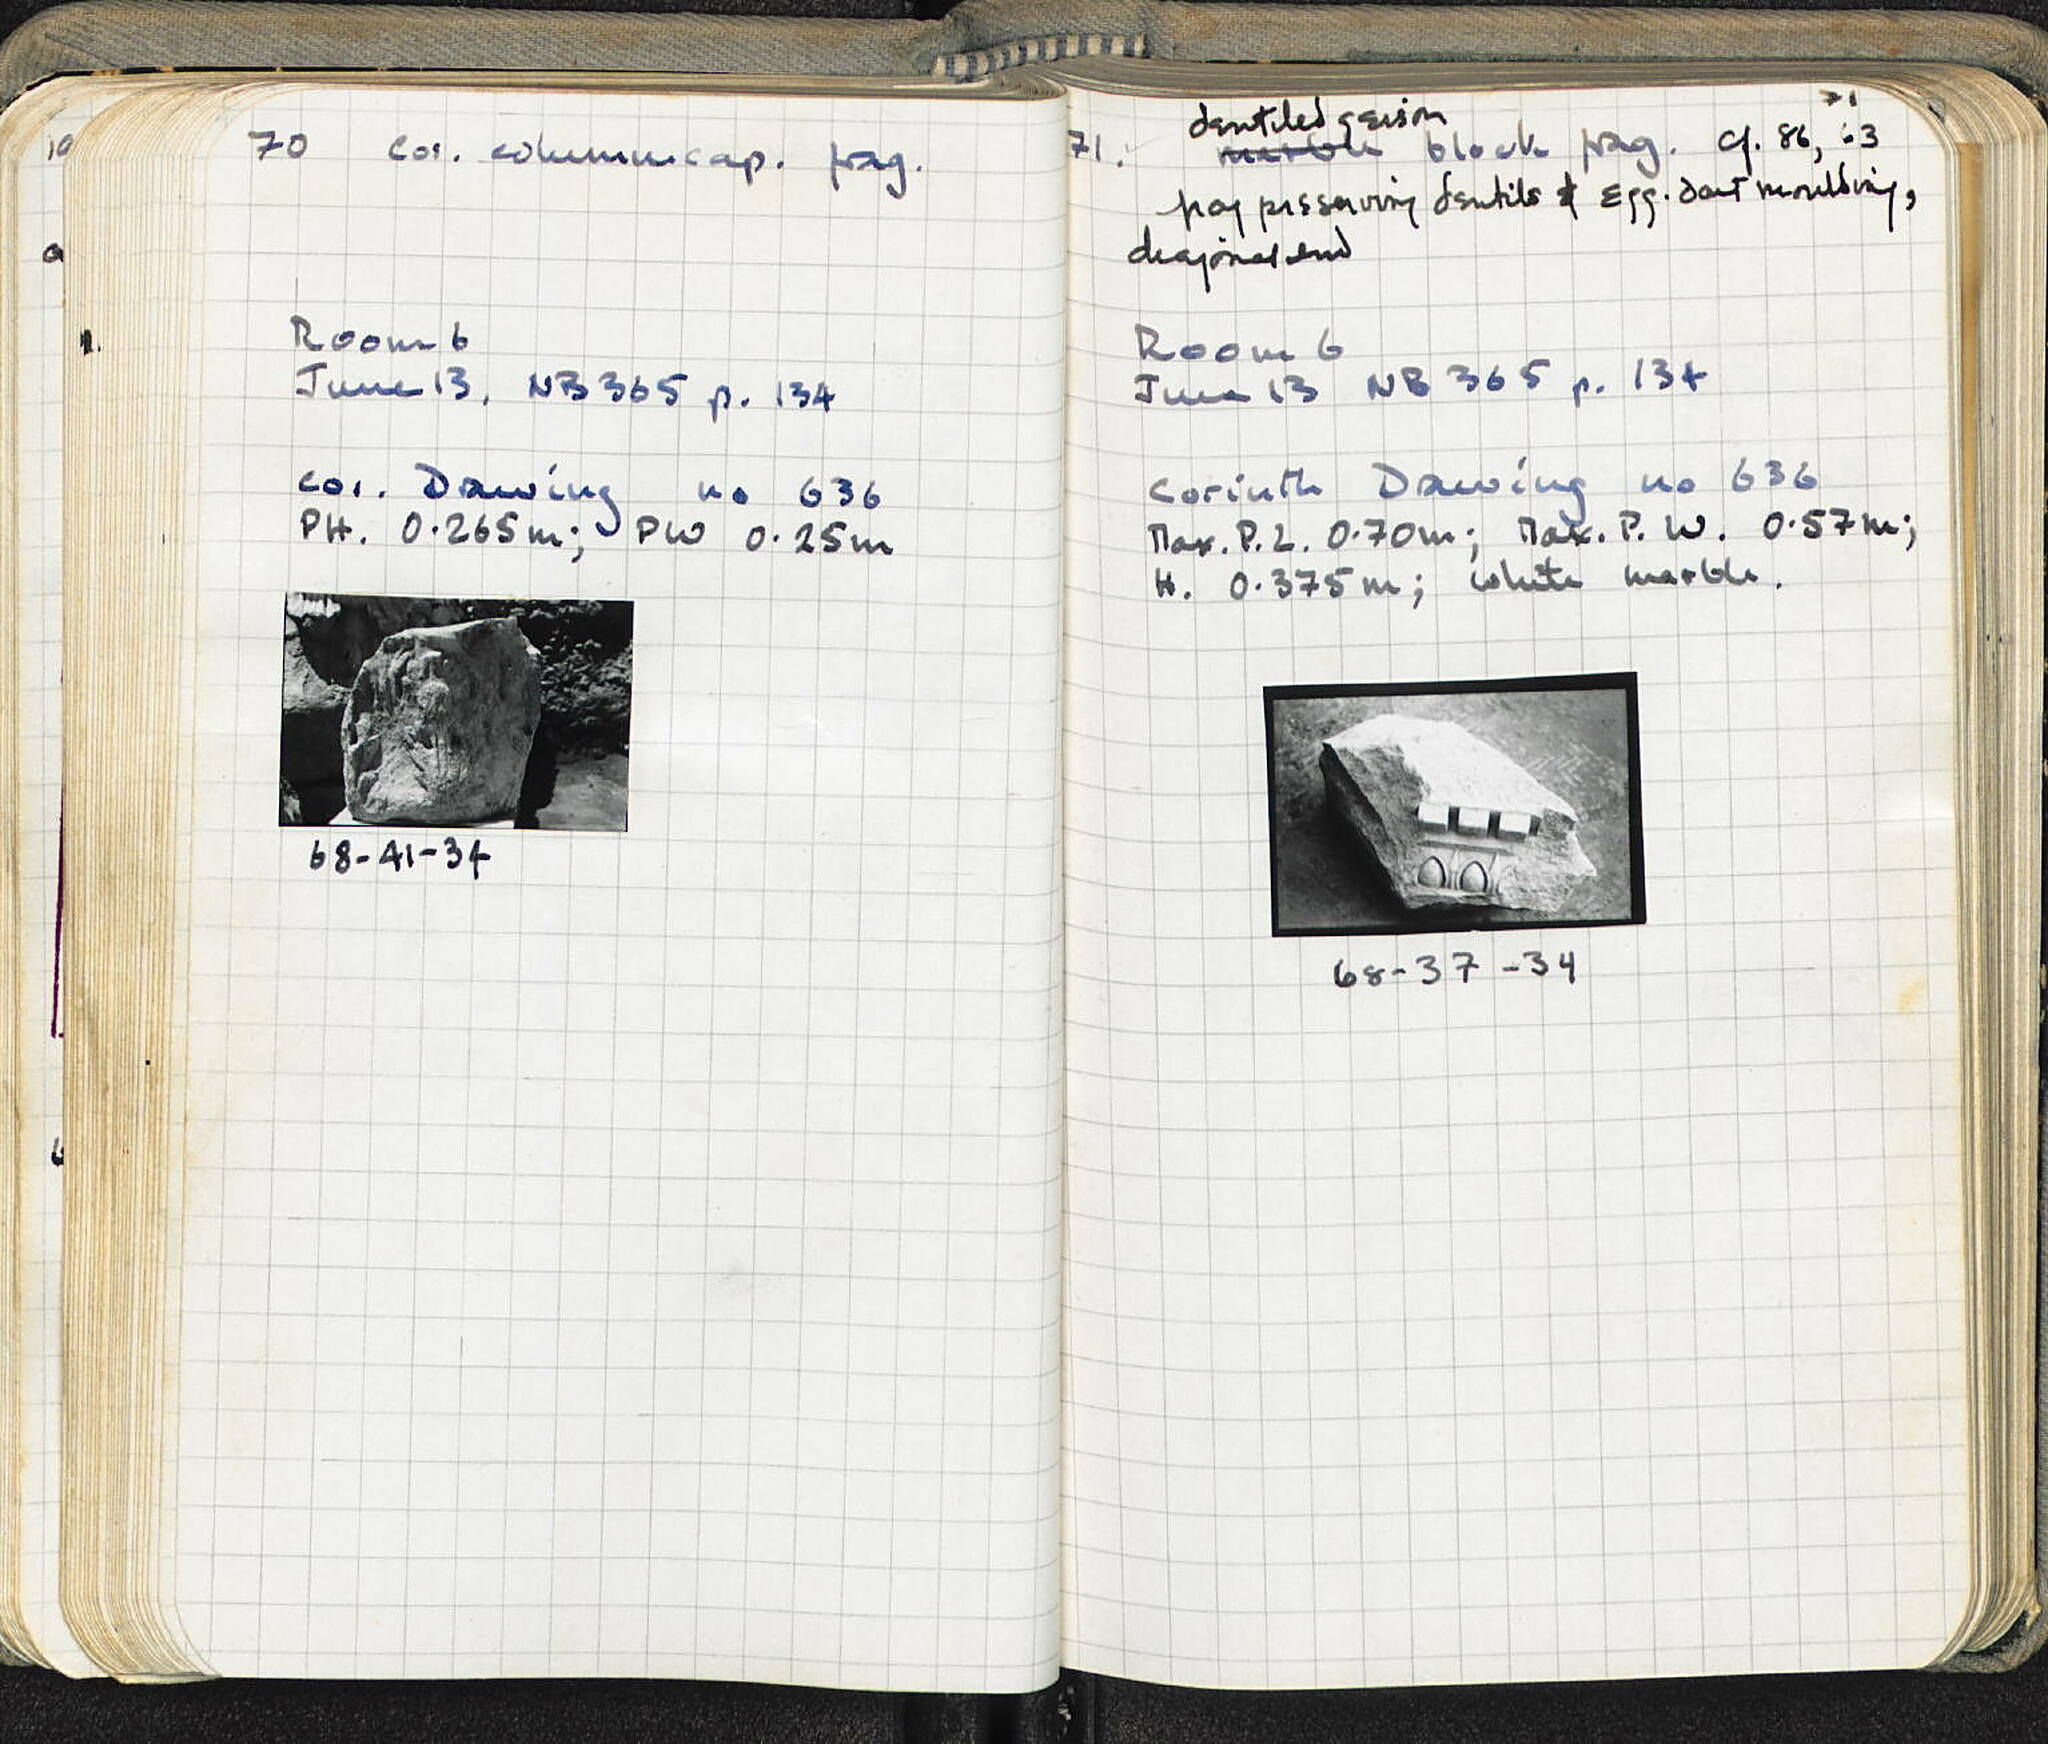 70 Cor. column cap. frag.
Room 6
June 13, NB 365 p. 134
Cor. Drawing no 636
PH. 0.265m; PW 0.25m
68-41-34
71
dentiled geison
71. marble block frag. cf. 86, 63
frag preserving dentils & Egg. dart moulding,
diagonal end
Room 6
June 13 NB 365 p. 134
Corinth Drawing no 636
Max. P. L. 0.70m; Max. P. W. 0.57m;
H. 0.375m; white marble.
68-37-34